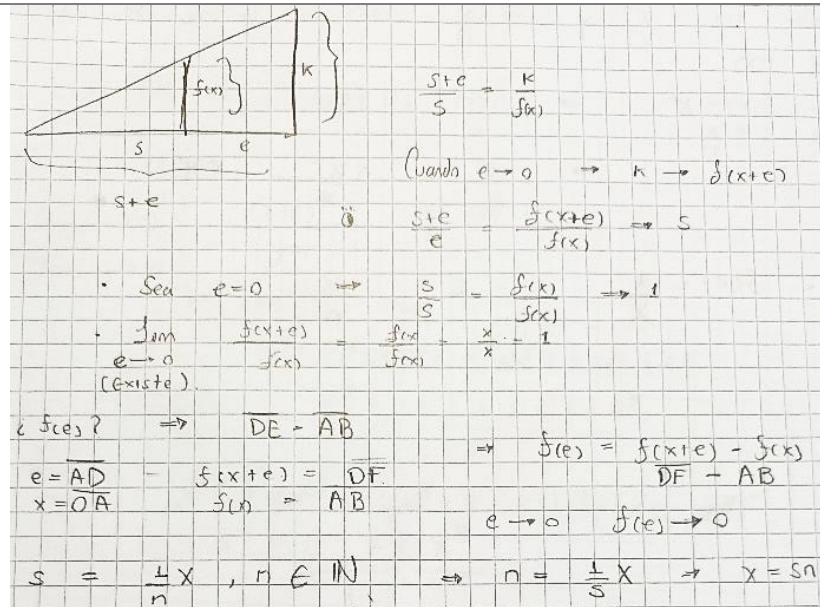 f(x)
K
s e
s+e
s+e/s = K/f(x)
Cuando e → 0 → K → f(x+e)
s+e/e = f(x+e)/f(x) ⇒ s
• Sea e=0 ⇒ s/s = f(x)/f(x) ⇒ 1
• Lim e→0 f(x+e)/f(x) = f(x)/f(x) = x/x = 1
(Existe).
¿f(e)? ⇒ DE - AB
⇒ f(e) = f(x+e) - f(x)
e = AD - f(x+e) = DF.
DF - AB
x = OA f(x) = AB
e → 0 f(e) → 0
s = 1/n x , n ∈ IN ⇒ n = 1/s x → x = sn